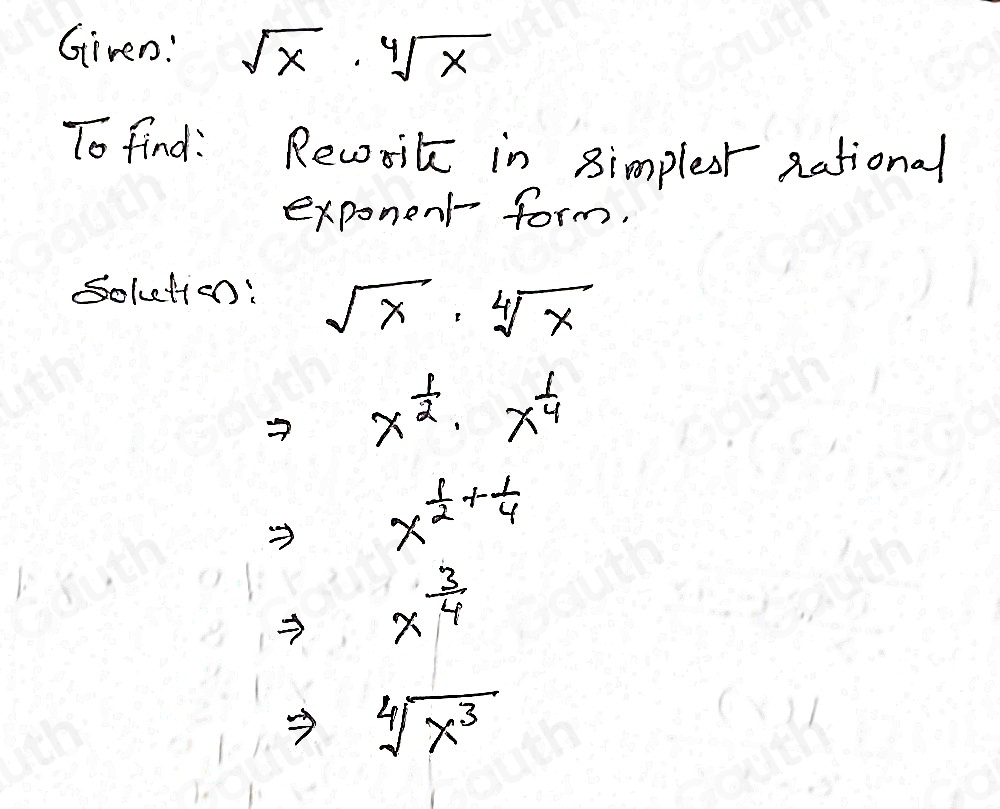 Given: √x . ∜x
To find: Rewrite in simplest rational
exponent form.
Solution: √x . ∜x
⇒ x^(1/2) . x^(1/4)
⇒ x^(1/2 + 1/4)
⇒ x^(3/4)
⇒ ∜(x³)
Gauth